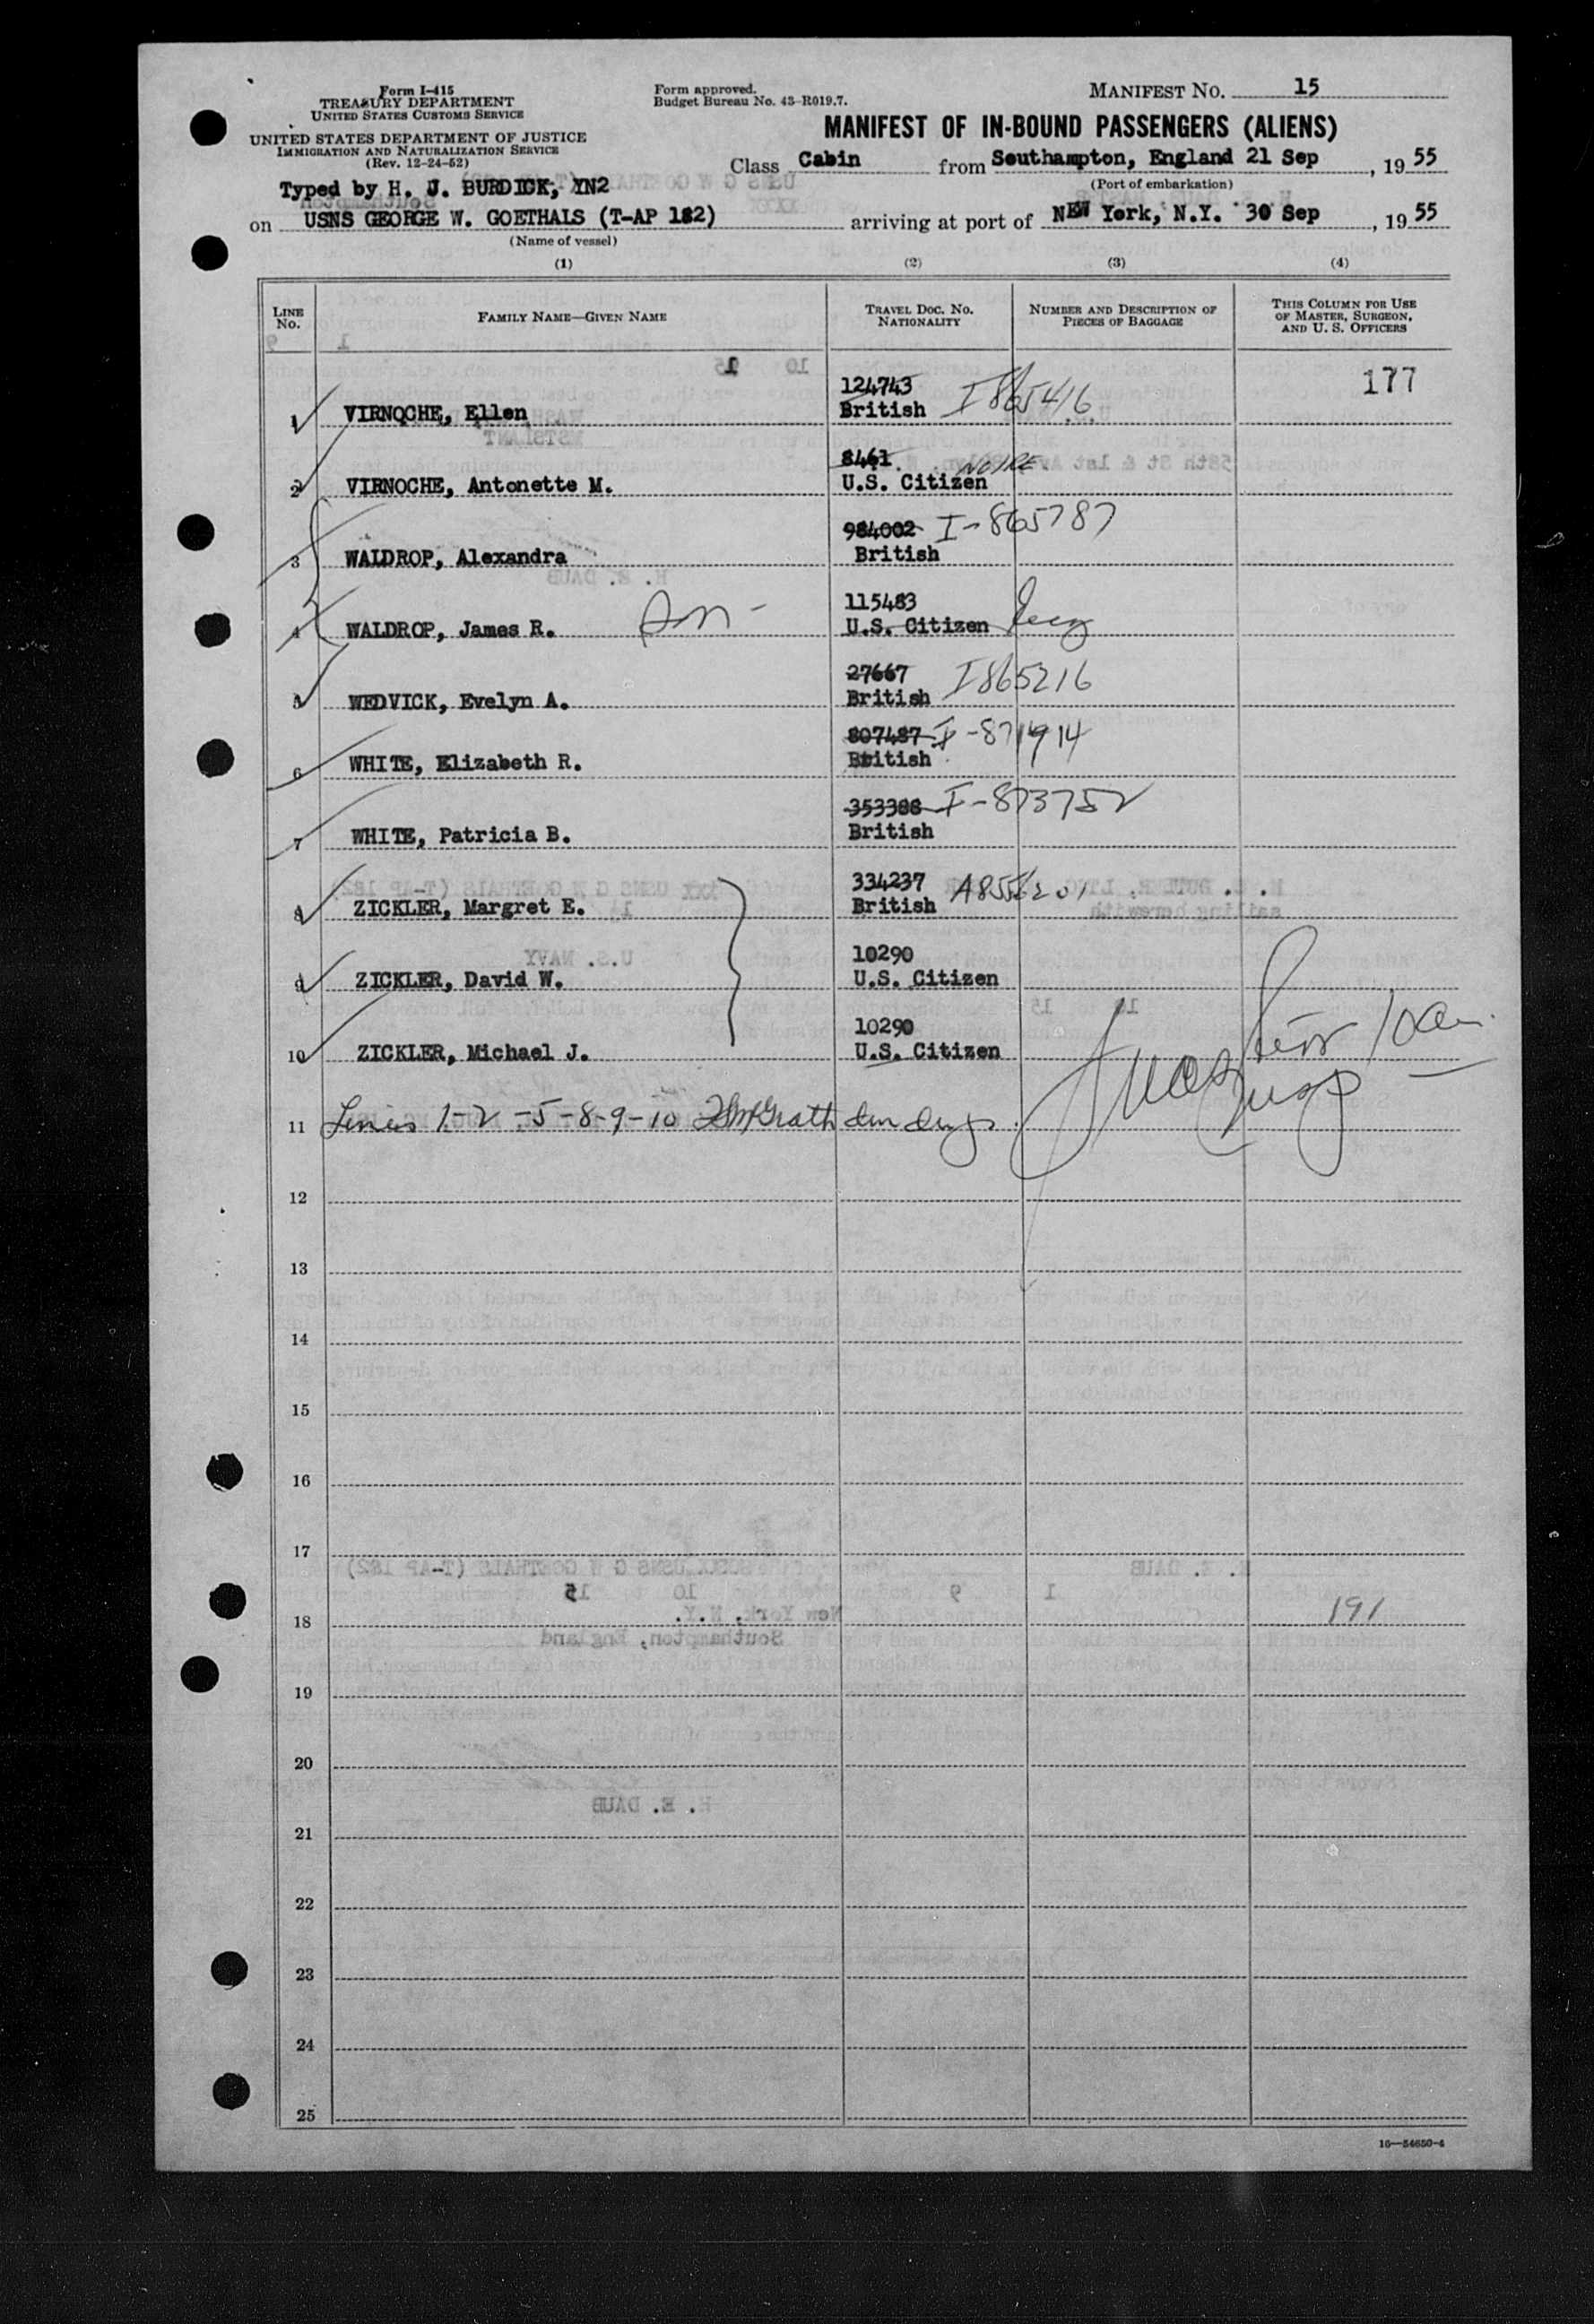 Form I-415
TREASURY DEPARTMENT
UNITED STATES CUSTOMS SERVICE
UNITED STATES DEPARTMENT OF JUSTICE
IMMIGRATION AND NATURALIZATION SERVICE
(Rev. 12-24-52)
Form approved.
Budget Bureau No. 43-R019.7.
MANIFEST No. 15
MANIFEST OF IN-BOUND PASSENGERS (ALIENS)
Class Cabin from Southampton, England 21 Sep, 1955
(Port of embarkation)
Typed by H. J. BURDICK, YN2
on USNS GEORGE W. GOETHALS (T-AP 182) arriving at port of NEW York, N.Y. 30 Sep, 1955
(Name of vessel)
(1) (2) (3) (4)
LINE No. FAMILY NAME—GIVEN NAME TRAVEL DOC. NO. NATIONALITY NUMBER AND DESCRIPTION OF PIECES OF BAGGAGE THIS COLUMN FOR USE OF MASTER, SURGEON, AND U. S. OFFICERS
177
124743
1 VIRNOCHE, Ellen British I865416
8461
2 VIRNOCHE, Antonette M. U.S. Citizen
984002 I-865787
3 WALDROP, Alexandra British
115483
4 WALDROP, James R. U.S. Citizen
27667 I865216
5 WEDVICK, Evelyn A. British
807487 I-871914
6 WHITE, Elizabeth R. British
353388 I-873752
7 WHITE, Patricia B. British
334237
8 ZICKLER, Margret E. British A8556201
10290
9 ZICKLER, David W. U.S. Citizen
10290
10 ZICKLER, Michael J. U.S. Citizen
11 Lines 1-2-5-8-9-10 McGrath
12
13
14
15
16
17
18 191
19
20
21
22
23
24
25
16—54650-4